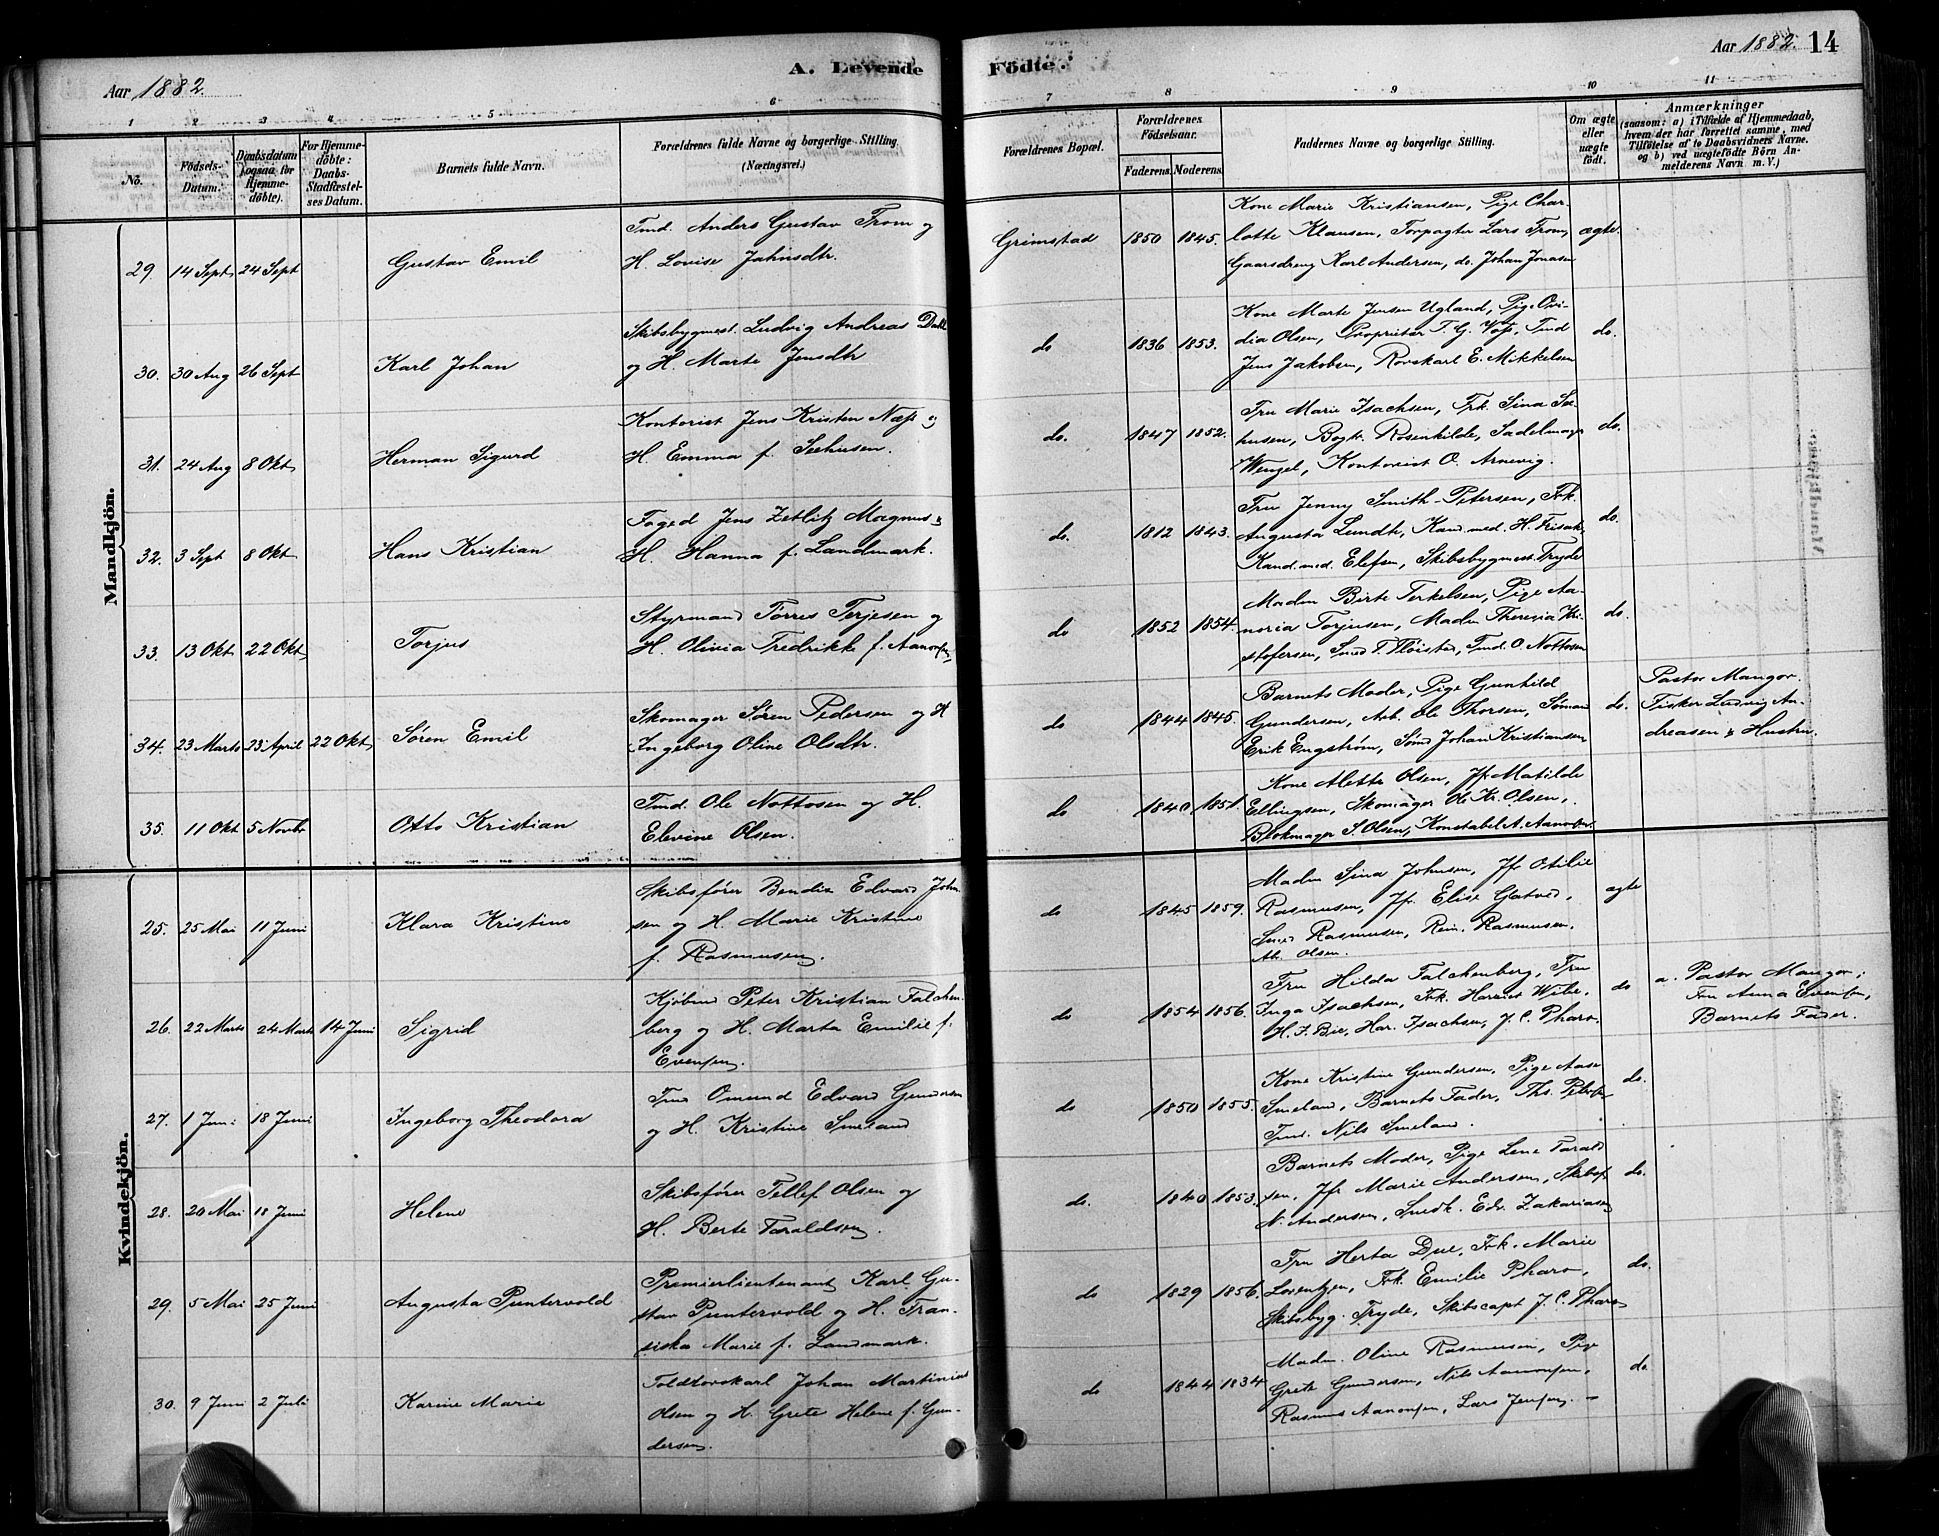 Aar 1882. A. Levende Födte. Aar 1882. 14
1 2 3 4 5 6 7 8 9 10 11
No. Födsels-Datum. Daabsdatum (ogsaa for Hjemmedøbte). For Hjemmedöbte: Daabs-Stadfæstelses Datum. Barnets fulde Navn. Forældrenes fulde Navne og borgerlige Stilling (Næringsvei.) Forældrenes Bopæl. Forældrenes Födselsaar. Faderens. Moderens. Faddernes Navne og borgerlige Stilling. Om ægte eller uægte födt. Anmærkninger (saasom: a) i Tilfælde af Hjemmedaab, hvem der har forrettet samme, med Tilföielse af to Daabsvidners Navne. og b) ved uægtefödte Börn Anmelderens Navn m. V.)
Mandkjön.
29. 14 Sept 24 Sept Gustav Emil
Tmd. Anders Gustav Trom og
H. Lovise Jahnsdtr.
Grimstad 1850 1845.
Kone Marie Kristiansen, Pige Char-
lotte Klausen, Forpagter Lars Trom, ægte.
Gaarsdreng Karl Andersen, do. Johan Jonasen
30. 30 Aug 26 Sept Karl Johan
Skibsbygmest. Ludvig Andreas Dahl
og H. Marte Jensdtr
do 1836 1853.
Kone Marte Jensen Ugland, Pige Ovi-
dia Olsen, Proprietær T. G. Voss, Tmd do.
Jens Jakobsen, Rorskarl E. Mikkelsen
31. 24 Aug 8 Okt Herman Sigurd
Kontorist Jens Kristen Næss og
H. Emma f. Seehusen.
do. 1847 1852.
Fru Marie Isachsen, Frk. Sina Se-
husen, Bogtr. Rosenkilde, Sadelmager do.
Wenzel, Kontorist O. Arnevig.
32. 3 Sept 8 Okt Hans Kristian
Foged Jens Zetlitz Magnus &
H. Hanna f. Landmark.
do. 1812 1843.
Fru Jenny Smith-Petersen, Frk.
Augusta Lundh, Kand. med. H. Frisak do.
Kand. med. Elefsen, Skibsbygmest. Tryde
33. 13 Okt 22 Okt Torjus
Styrmand Torres Terjesen og
H. Olivia Fredrikke f. Aanonsen
do 1852 1854.
Madm Birte Terkelsen, Pige Aa-
noria Torjusen, Madm Theresia Kri- do.
stofersen, Smed T. Fløistad, Tmd. O. Nottosen
34. 23 Marts 23 April 22 Okt Søren Emil
Skomager Søren Pedersen og H
Ingeborg Oline Olsdtr.
do 1844 1845.
Barnets Moder, Pige Gunhild
Gundersen, Arb. Ole Thorsen, Sømand do.
Erik Engstrøm, Sømd Johan Kristiansen
Pastor Mangor.
Fisker Ludvig An-
dreasen & Hustru.
35. 11 Okt 5 Novbr Otto Kristian
Tmd. Ole Nottosen og H.
Elevine Olsen.
do 1840 1851.
Kone Aletta Olsen, Jfr Matilde
Ellingsen, Skomager Ole Kr. Olsen,
Blokmager S. Olsen, Konstabel A. Aanonsen.
Kvindekjön.
25. 25 Mai 11 Juni Klara Kristine
Skibsfører Bendix Edvard John-
sen og H. Marie Kristine
f. Rasmussen.
do 1845 1859.
Madm Sina Johnsen, Jfr Otilie
Rasmussen, Jfr. Elise Gatved, ægte
Smed Rasmussen, Rein. Rasmussen,
Ab. Olsen.
26. 22 Marts 24 Marts 14 Juni Sigrid
Kjøbmd Peter Kristian Falchen-
berg og H. Marta Emilie f.
Evensen.
do 1854 1856.
Fru Hilda Falchenberg, Fru
Inga Isachsen, Frk. Harriet Wibe, do
H. F. Bie, Har. Isachsen, J. C. Pharo.
a. Pastor Mangor;
Fru Anna Evensen,
Barnets Fader.
27. 1 Juni 18 Juni Ingeborg Theodora
Tmd Omund Edvard Gundersen
og H. Kristine Smeland
do 1850 1855.
Kone Kristine Gundersen, Pige Aase
Smeland, Barnets Fader, Ths. Pedersen, do.
Tmd. Nils Smeland.
28. 20 Mai 18 Juni Helene
Skibsfører Tellef Olsen og
H. Berte Taraldsen.
do. 1840 1853.
Barnets Moder, Pige Lene Tarald-
sen, Jfr Marie Andersen, Skibsf. do.
N. Andersen, Snedk. Edv. Zakariasen
29. 5 Mai 25 Juni Augusta Puntervold
Premierlieutenant Karl Gu-
stav Puntervold og H. Fran-
siska Marie f. Landmark.
do 1829 1856.
Fru Herta Due, Frk. Marie
Lorentzen, Frk. Emilie Pharo, do.
Skibsbyg. Tryde, Skibscapt J. C. Pharo
30. 9 Juni 2 Juli Karine Marie
Toldtorskarl Johan Martinius
Olsen og H. Grete Helene f. Gun-
dersen.
do 1844 1834
Madm. Oline Rasmussen, Pige
Grete Gundersen, Nils Aanonsen, do
Rasmus Aanonsen, Lars Jensen. –